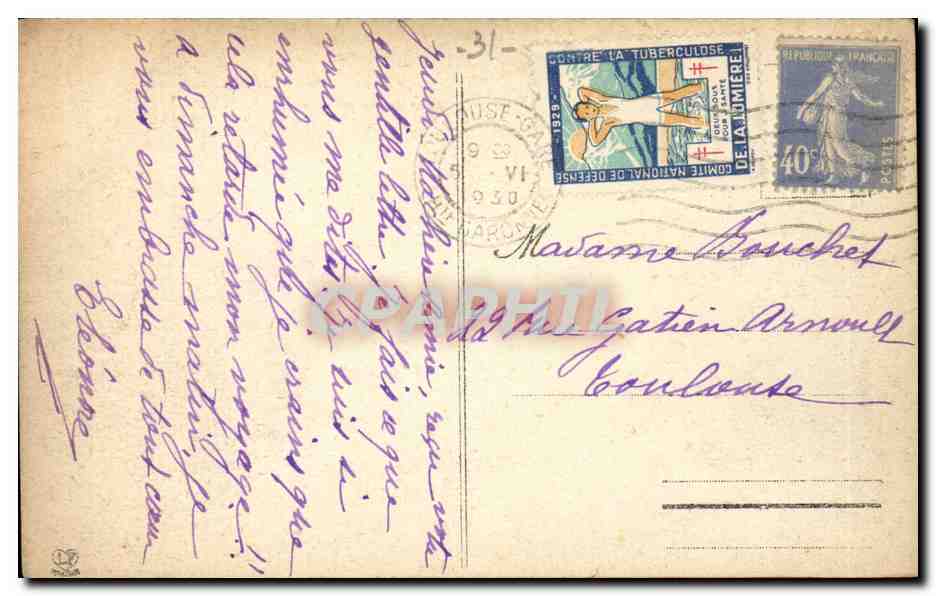 -31-
CONTRE LA TUBERCULOSE
1929
DE LA LUMIÈRE!
DEUX SOUS
POUR LA SANTÉ
COMITÉ NATIONAL DE DÉFENSE
REPUBLIQUE FRANÇAISE
40c
POSTES
TOULOUSE-GARE
5 - VI
1930
Hte GARONNE
Madame Bouchet
22 Rue Gatien Arnoult
Toulouse
amie, reçu votre
gentille lettre je fais ce que
vous me dites je suis si
enrhumée que je crains que
cela retarde mon voyage!!
a dimanche matin, je
vous embrasse de tout cœur
Eléonore
CPAPHIL